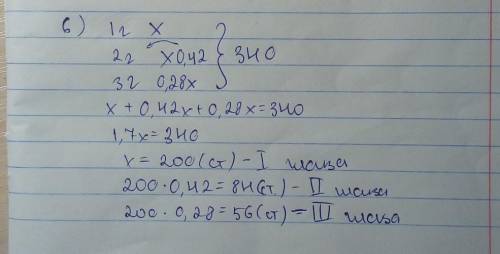 6) 1г x
2г x0,42 } 340
3г 0,28x
x + 0,42x + 0,28x = 340
1,7x = 340
x = 200 (ст) - I
200 · 0,42 = 84 (ст) - II
200 · 0,28 = 56 (ст) - III